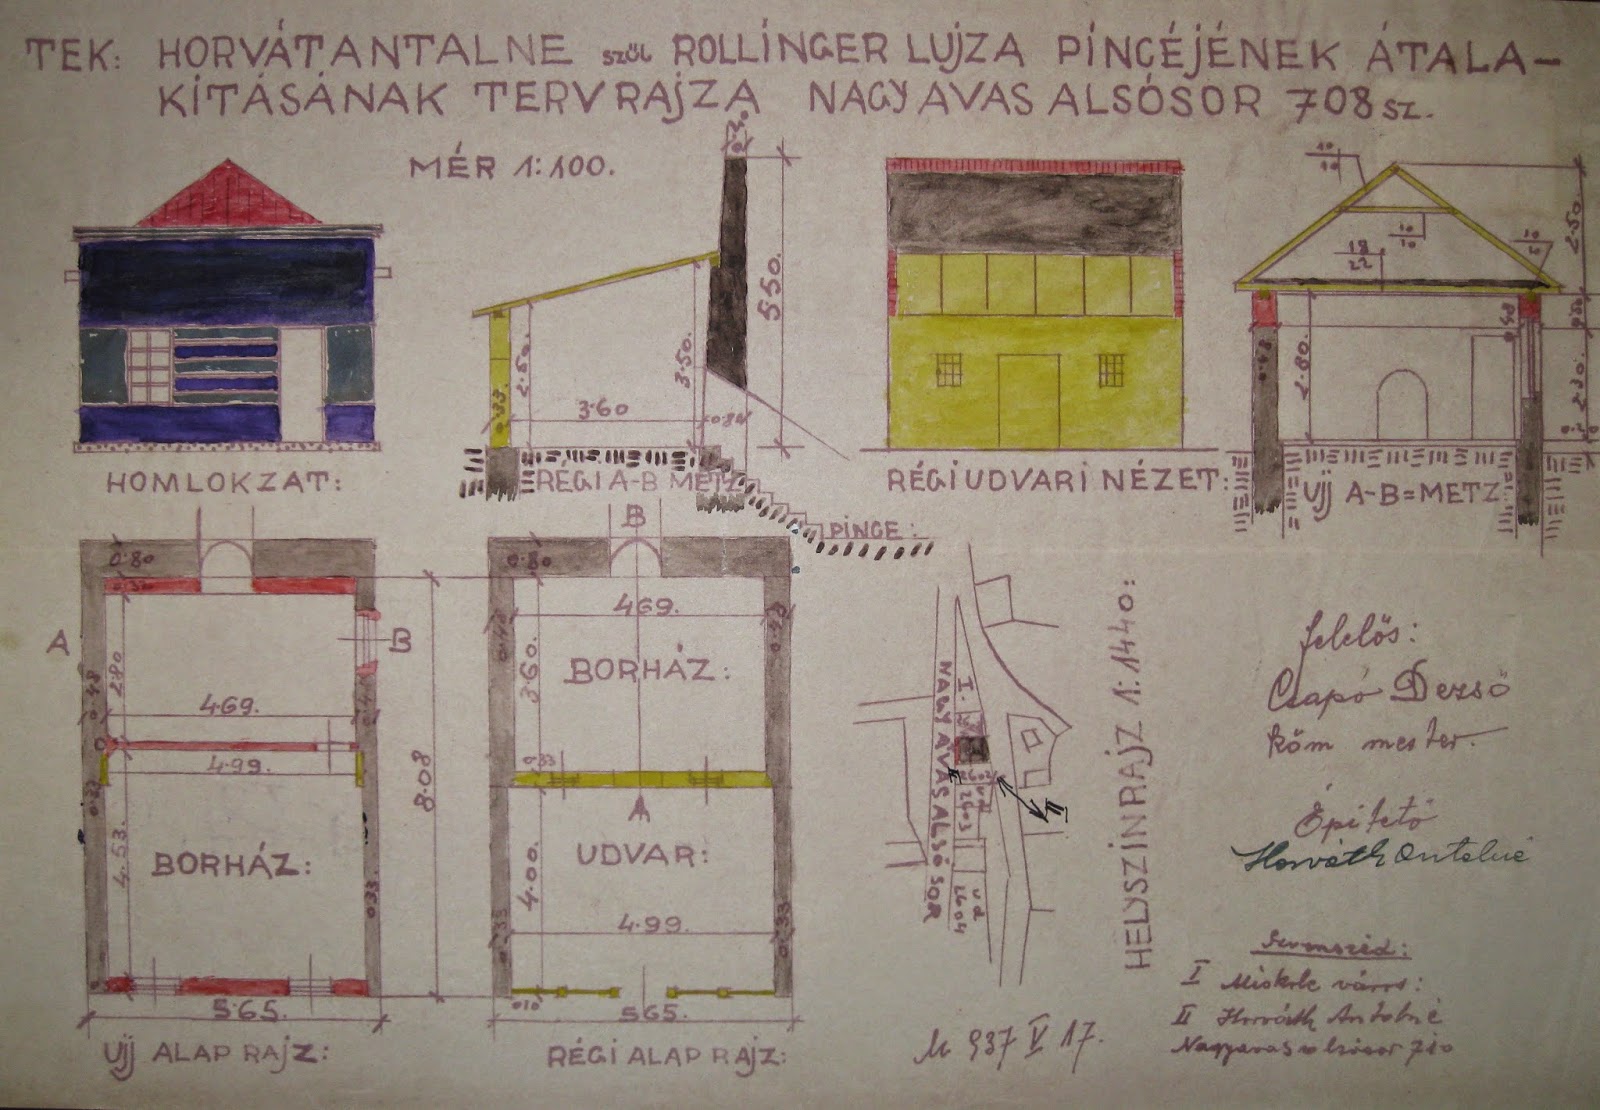 TEK: HORVÁTANTALNE szül ROLLINGER LUJZA PINCÉJÉNEK ÁTALA-
KITÁSÁNAK TERVRAJZA NAGYAVAS ALSÓSOR 708 SZ.
MÉR 1:100.
HOMLOKZAT:
5.50.
2.50.
3.50.
3.60
0.80
0.33
RÉGI A-B METZ
PINCE:
RÉGI UDVARI NÉZET:
10
10
10
10
18
22
10
2.50.
2.80.
2.30
UJJ A-B=METZ
0.80
0.33
A
B
0.48
2.80
469.
4.99.
4.53.
0.33
BORHÁZ:
8.08
5.65.
UJJ ALAP RAJZ:
B
0.80
469.
3.60.
BORHÁZ:
0.33
A
UDVAR:
4.00.
4.99.
0.33
0.33
0.10
565.
RÉGI ALAP RAJZ:
I.
NAGY AVAS ALSÓ SOR
2602
2603
2604
II
HELYSZINRAJZ 1:1440:
felelős:
Csapó Dezső
kőm mester.
Épitető
Horváth Antalné
Szomszéd:
I Miskolc város:
II Horváth Antalné
Nagyavas alsósor 710
M 937 V 17.